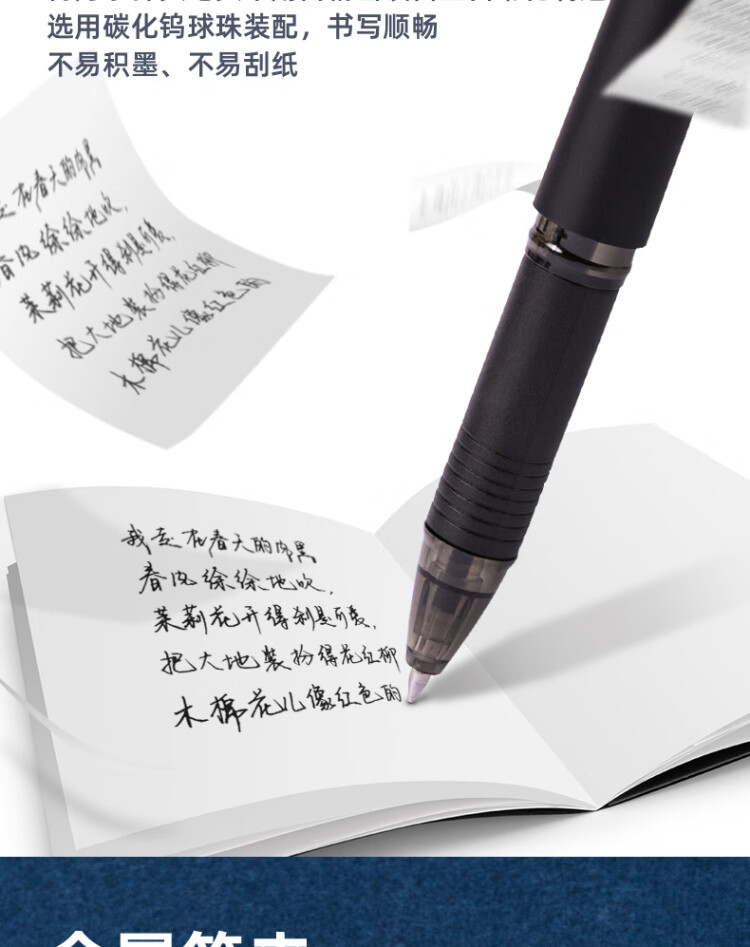 选用碳化钨球珠装配，书写顺畅
不易积墨、不易刮纸
在春天的
春风徐徐地吹，
茉莉花开得
把大地装扮得花红柳
木棉花儿像红色的
我走在春天的
春风徐徐地吹，
茉莉花开得
把大地装扮得花红柳
木棉花儿像红色的